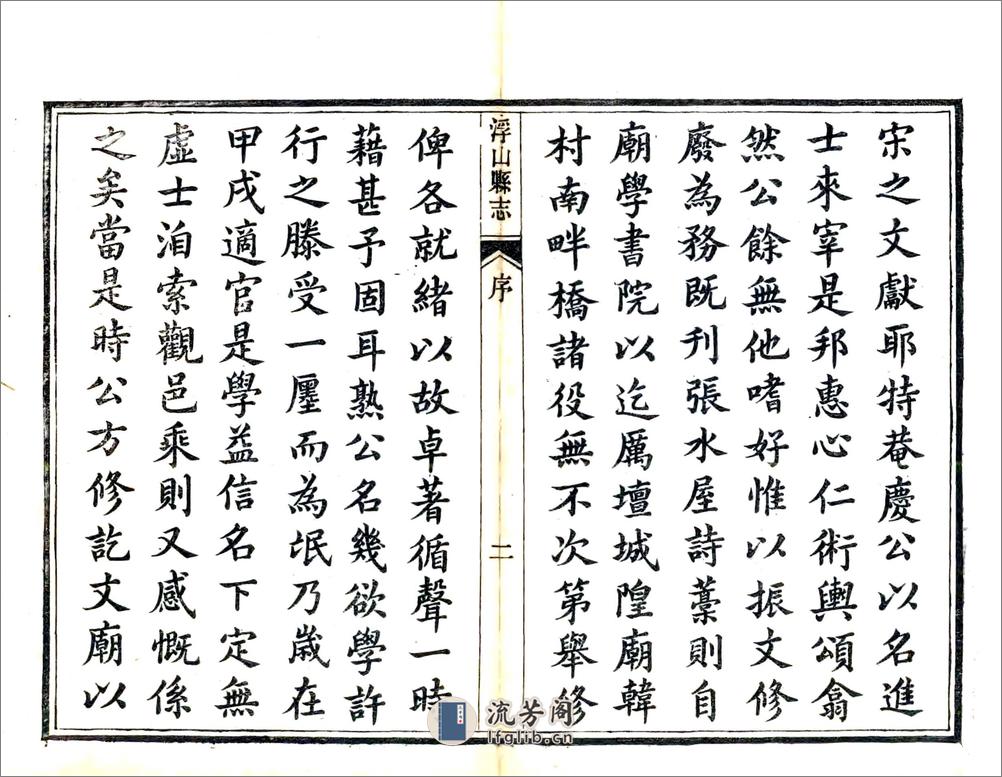 宋之文獻耶特菴慶公以名進
士來宰是邦惠心仁術輿頌翕
然公餘無他嗜好惟以振文修
廢為務既刊張水屋詩藁則自
廟學書院以迄厲壇城隍廟韓
村南畔橋諸役無不次第舉修
浮山縣志
序
二
俾各就緒以故卓著循聲一時
藉甚予固耳熟公名幾欲學許
行之滕受一廛而為氓乃歲在
甲戌適官是學益信名下定無
虛士洎索觀邑乘則又感慨係
之矣當是時公方修訖文廟以
流芳阁
lfglib.cn